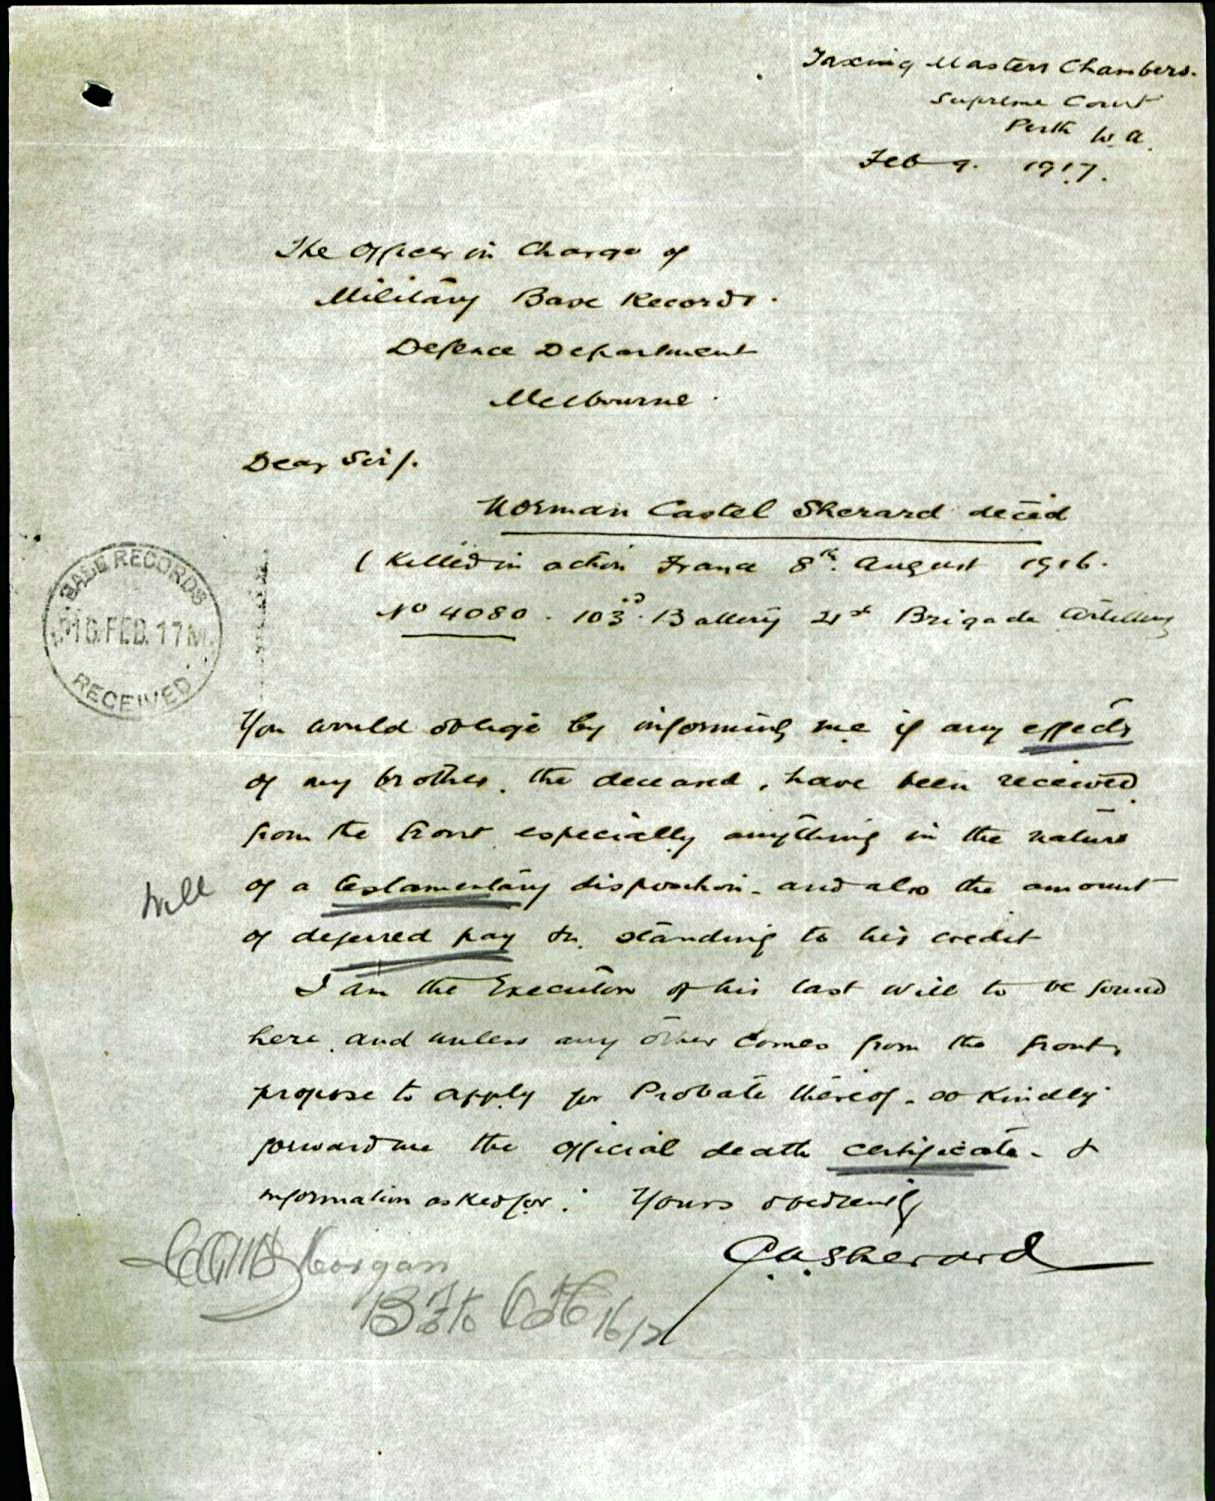 Taxing Masters Chambers.
Supreme Court
Perth W.A.
Feb 9. 1917.
The Officer in Charge of
Military Base Records.
Defence Department
Melbourne.
Dear Sir/.
Norman Castel Sherard deced
(Killed in action France 8th. August 1916.
No 4080. 103rd. Battery 21st Brigade Artillery
BASE RECORDS
16 FEB. 17
RECEIVED
You would oblige by informing me if any effects
of my brother, the deceased, have been received
from the front especially anything in the nature
Will
of a testamentary disposition - and also the amount
of deferred pay &c. standing to his credit
I am the Executor of his last will to be found
here, and unless any other comes from the front,
propose to apply for Probate thereof - so kindly
forward me the official death certificate - &
information asked for. Yours obediently
C.A. Sherard
Morgan
16/2